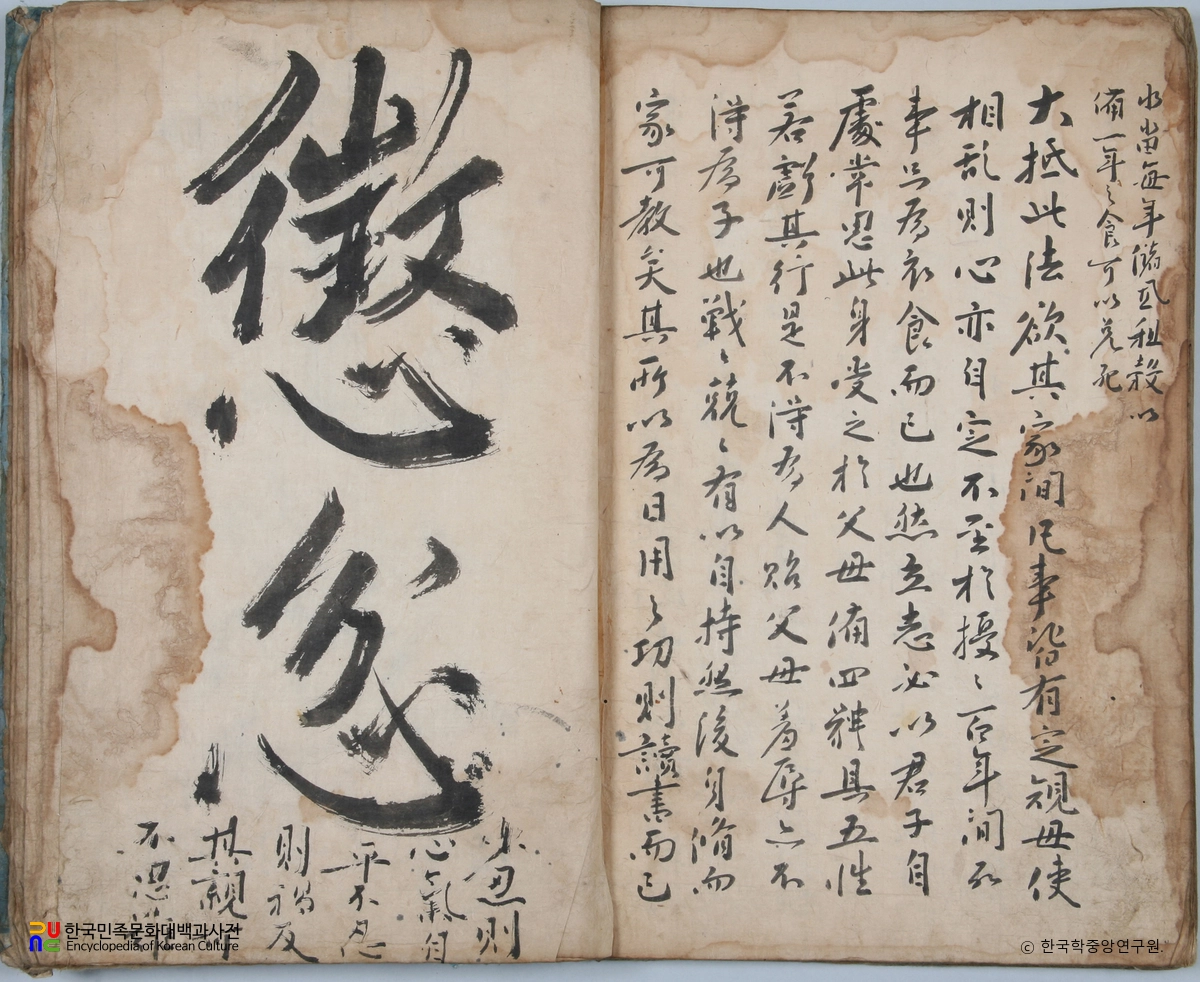 當每年儲租穀以
備一年之食可以免死
大抵此法欲其家間凡事皆有定規毋使
相亂則心亦自定不至於擾〻百年間所
事只爲衣食而已也然立志必以君子自
處常思此身受之於父母備四軆具五性
若虧其行是不得爲人貽父母羞辱亦不
得爲子也戰〻兢〻有以自持然後身脩而
家可教矣其所以爲日用之功則讀書而已
懲忿
忍則
心氣自
平不忍
則禍及
其親可
不思
한국민족문화대백과사전
Encyclopedia of Korean Culture
© 한국학중앙연구원.